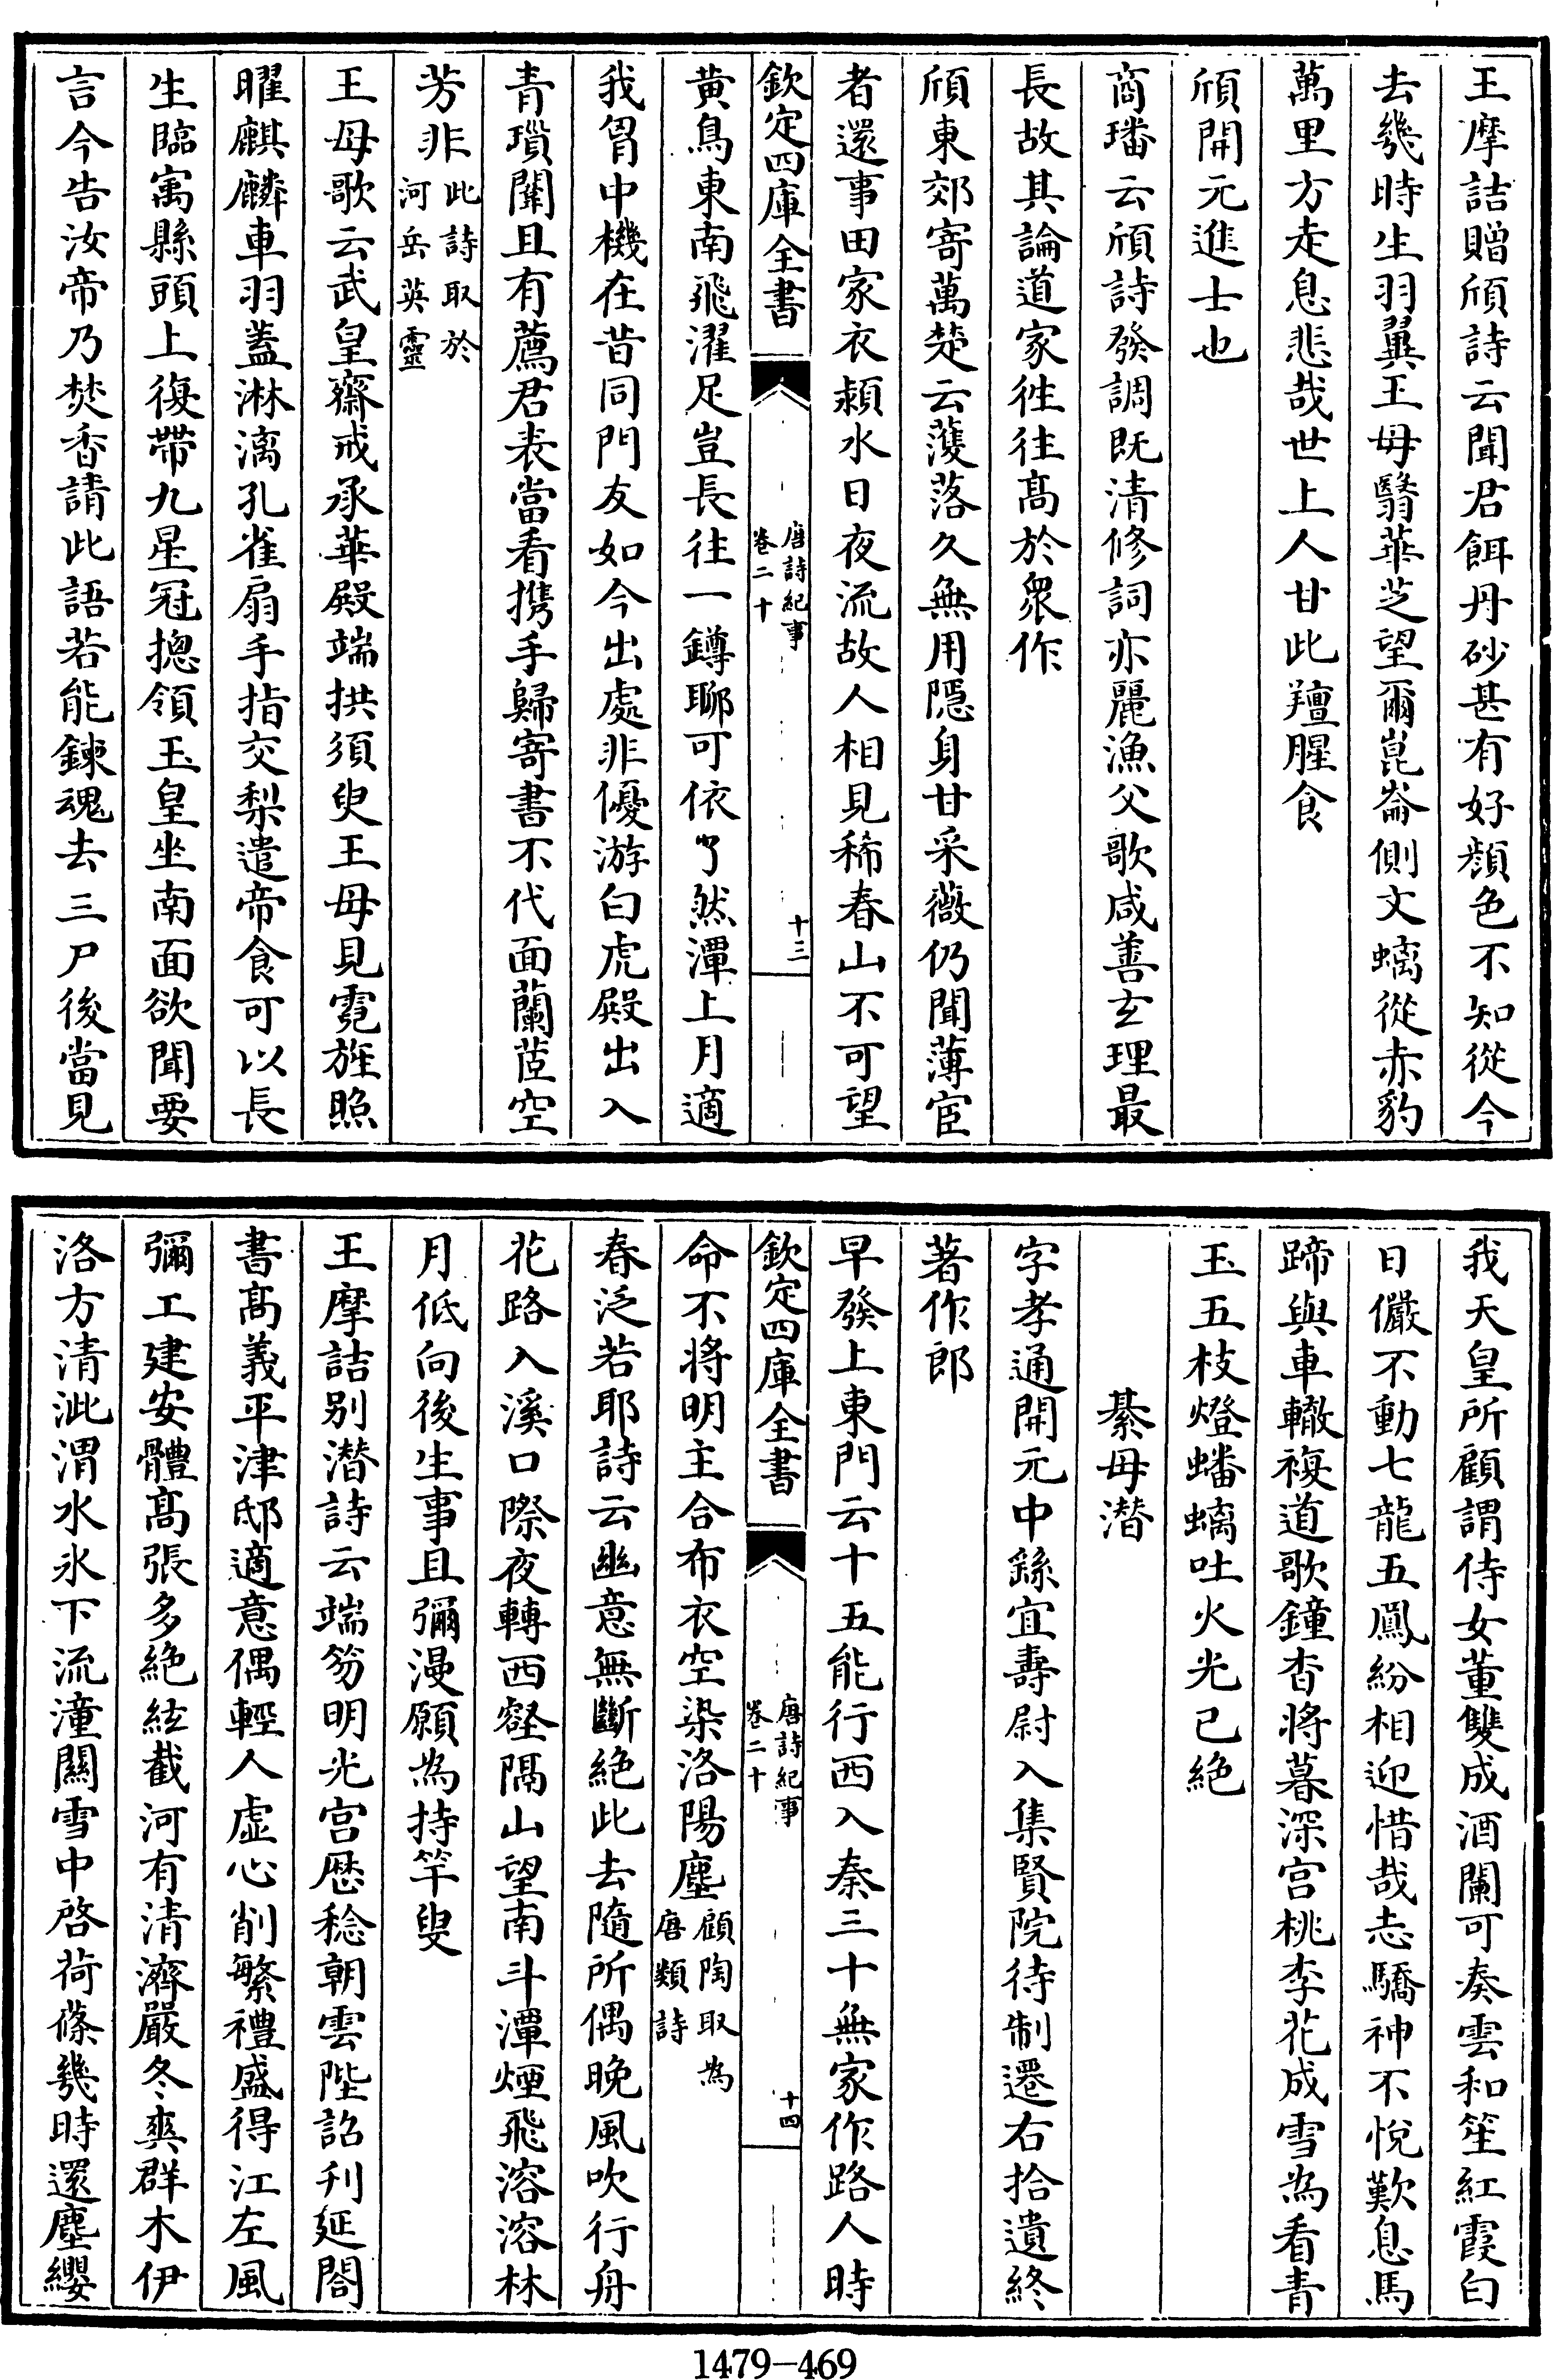 王摩詰贈頎詩云聞君餌丹砂甚有好顔色不知從今
去幾時生羽翼王母翳華芝望爾崑崙側文螭從赤豹
萬里方走息悲哉世上人甘此羶腥食
頎開元進士也
商璠云頎詩發調既清修詞亦麗漁父歌咸善玄理最
長故其論道家徃往髙於衆作
頎東郊寄萬楚云濩落久無用隠身甘采薇仍聞薄宦
者還事田家衣潁水日夜流故人相見稀春山不可望
欽定四庫全書
唐詩紀事
卷二十
十三
黄鳥東南飛濯足豈長往一鐏聊可依了然潭上月適
我胷中機在昔同門友如今出處非優游白虎殿出入
青瑣闈且有薦君表當看携手歸寄書不代面蘭茝空
芳非
此詩取於
河岳英靈
王母歌云武皇齋戒承華殿端拱須臾王母見霓旌照
曜麒麟車羽蓋淋漓孔雀扇手指交梨遣帝食可以長
生臨寓縣頭上復帶九星冠摠領玉皇坐南面欲聞要
言今告汝帝乃焚香請此語若能鍊魂去三尸後當見
我天皇所顧謂侍女董雙成酒闌可奏雲和笙紅霞白
日儼不動七龍五鳳紛相迎惜哉志驕神不悅歎息馬
蹄與車轍複道歌鐘杳將暮深宫桃李花成雪為看青
玉五枝燈蟠螭吐火光已絶
綦毋潜
字孝通開元中繇宜壽尉入集賢院待制遷右拾遺終
著作郎
早發上東門云十五能行西入秦三十無家作路人時
欽定四庫全書
唐詩紀事
卷二十
十四
命不將明主合布衣空染洛陽塵
顧陶取為
唐類詩
春泛若耶詩云幽意無斷絶此去隨所偶晚風吹行舟
花路入溪口際夜轉西壑隔山望南斗潭煙飛溶溶林
月低向後生事且彌漫願為持竿叟
王摩詰别潜詩云端笏明光宫厯稔朝雲陛詔刋延閣
書髙義平津邸適意偶輕人虚心削繁禮盛得江左風
彌工建安體髙張多絶絃截河有清濟嚴冬爽群木伊
洛方清泚渭水氷下流潼關雪中啓荷蓧幾時還塵纓
1479-469